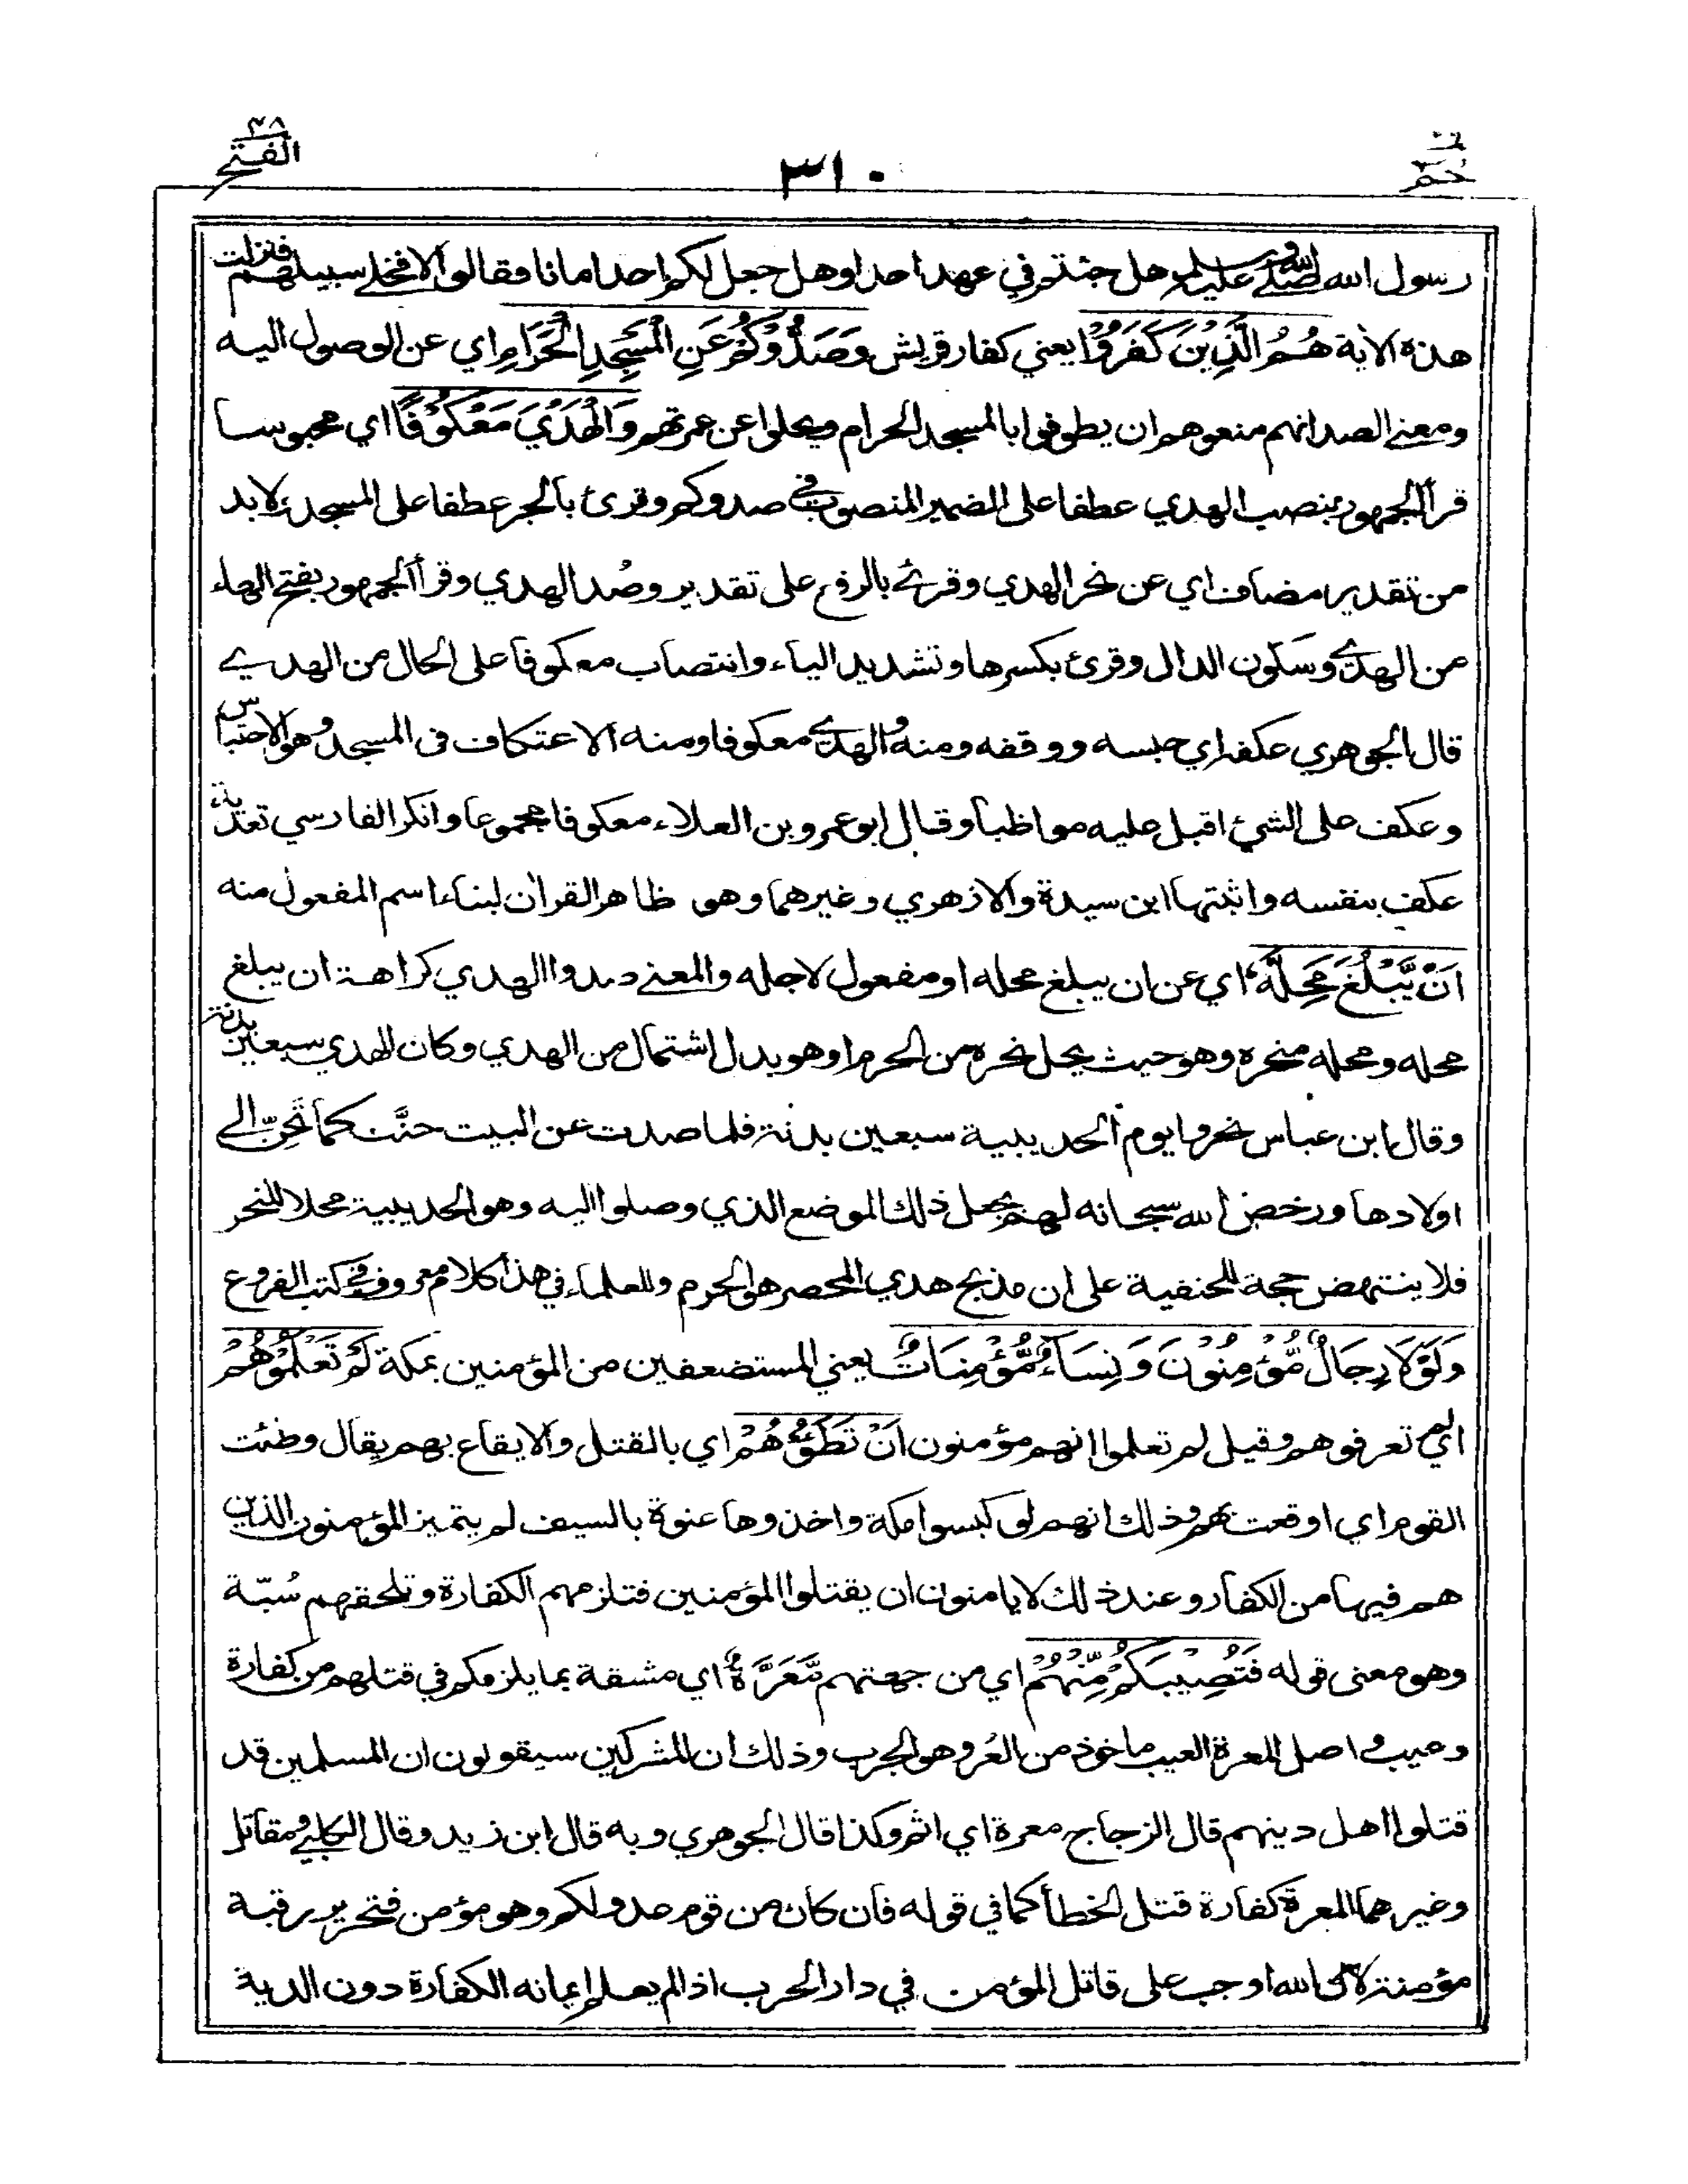 حٰم
٣١٠
الفتح ٤٨
رسول الله صلى الله عليه وسلم هل جئتم في عهد احد او هل جعل لكم احد امانا فقالوا لا فخلى سبيلهم فنزلت
هذه الاية هُمُ الَّذِيْنَ كَفَرُوْا يعني كفار قريش وَصَدُّوْكُمْ عَنِ الْمَسْجِدِ الْحَرَامِ اي عن الوصول اليه
ومعنى الصد انهم منعوهم ان يطوفوا بالمسجد الحرام ويحلوا عن عمرتهم وَالْهَدْيَ مَعْكُوْفًا اي محبوسا
قرأ الجمهور بنصب الهدي عطفا على الضمير المنصوب في صدوكم وقرئ بالجر عطفا على المسجد ولا بد
من تقدير مضاف اي عن نحر الهدي وقرئ بالرفع على تقدير وصُد الهدي وقرأ الجمهور بفتح الهاء
من الهدي وسكون الدال وقرئ بكسرها وتشديد الياء وانتصاب معكوفا على الحال من الهدي
قال الجوهري عكفه اي حبسه ووقفه ومنه والهدي معكوفا ومنه الاعتكاف في المسجد وهو الاحتباس
وعكف على الشيء اقبل عليه مواظبا وقال ابو عمرو بن العلاء معكوفا مجموعا وانكر الفارسي تعدية
عكف بنفسه واثبتها ابن سيدة والازهري وغيرهما وهو ظاهر القرأن لبناء اسم المفعول منه
اَنْ يَّبْلُغَ مَحِلَّهٗ اي عن ان يبلغ محله او مفعول لاجله والمعنى صدوا الهدي كراهة ان يبلغ
محله ومحله منحره وهو حيث يحل نحره من الحرم او هو بدل اشتمال من الهدي وكان الهدي سبعين بدنة
وقال ابن عباس نحروا يوم الحديبية سبعين بدنة فلما صدت عن البيت حنَّت كما تَحِنّ الى
اولادها ورخص الله سبحانه لهم بجعل ذلك الموضع الذي وصلوا اليه وهو الحديبية محلا للنحر
فلا ينتهض حجة للحنفية على ان مذبح هدي المحصر هو الحرم وللعلماء في هذا كلام معروف في كتب الفروع
وَلَوْلَا رِجَالٌ مُّؤْمِنُوْنَ وَنِسَاءٌ مُّؤْمِنَاتٌ يعني المستضعفين من المؤمنين بمكة لَمْ تَعْلَمُوْهُمْ
اي لم تعرفوهم وقيل لم تعلموا انهم مؤمنون اَنْ تَطَئُوْهُمْ اي بالقتل والايقاع بهم يقال وطئت
القوم اي اوقعت بهم وذلك انهم لو كبسوا مكة واخذوها عنوة بالسيف لم يتميز المؤمنون الذين
هم فيها من الكفار وعند ذلك لا يامنون ان يقتلوا المؤمنين فتلزمهم الكفارة وتلحقهم سُبّة
وهو معنى قوله فَتُصِيْبَكُمْ مِّنْهُمْ اي من جهتهم مَّعَرَّةٌ اي مشقة بما يلزمكم في قتلهم من كفارة
وعيب واصل المعرة العيب ماخوذ من العُر وهو الجرب وذلك ان المشركين سيقولون ان المسلمين قد
قتلوا اهل دينهم قال الزجاج معرة اي اثم وكذا قال الجوهري وبه قال ابن زيد وقال الكلبي ومقاتل
وغيرهما المعرة كفارة قتل الخطأ كما في قوله فان كان من قوم عدو لكم وهو مؤمن فتحرير رقبة
مؤمنة لان الله اوجب على قاتل المؤمن في دار الحرب اذا لم يعلم ايمانه الكفارة دون الدية